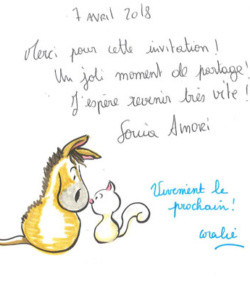 7 avril 2018
Merci pour cette invitation !
Un joli moment de partage !
J'espère revenir très vite !
Sonia
Vivement le
prochain !
Coralie